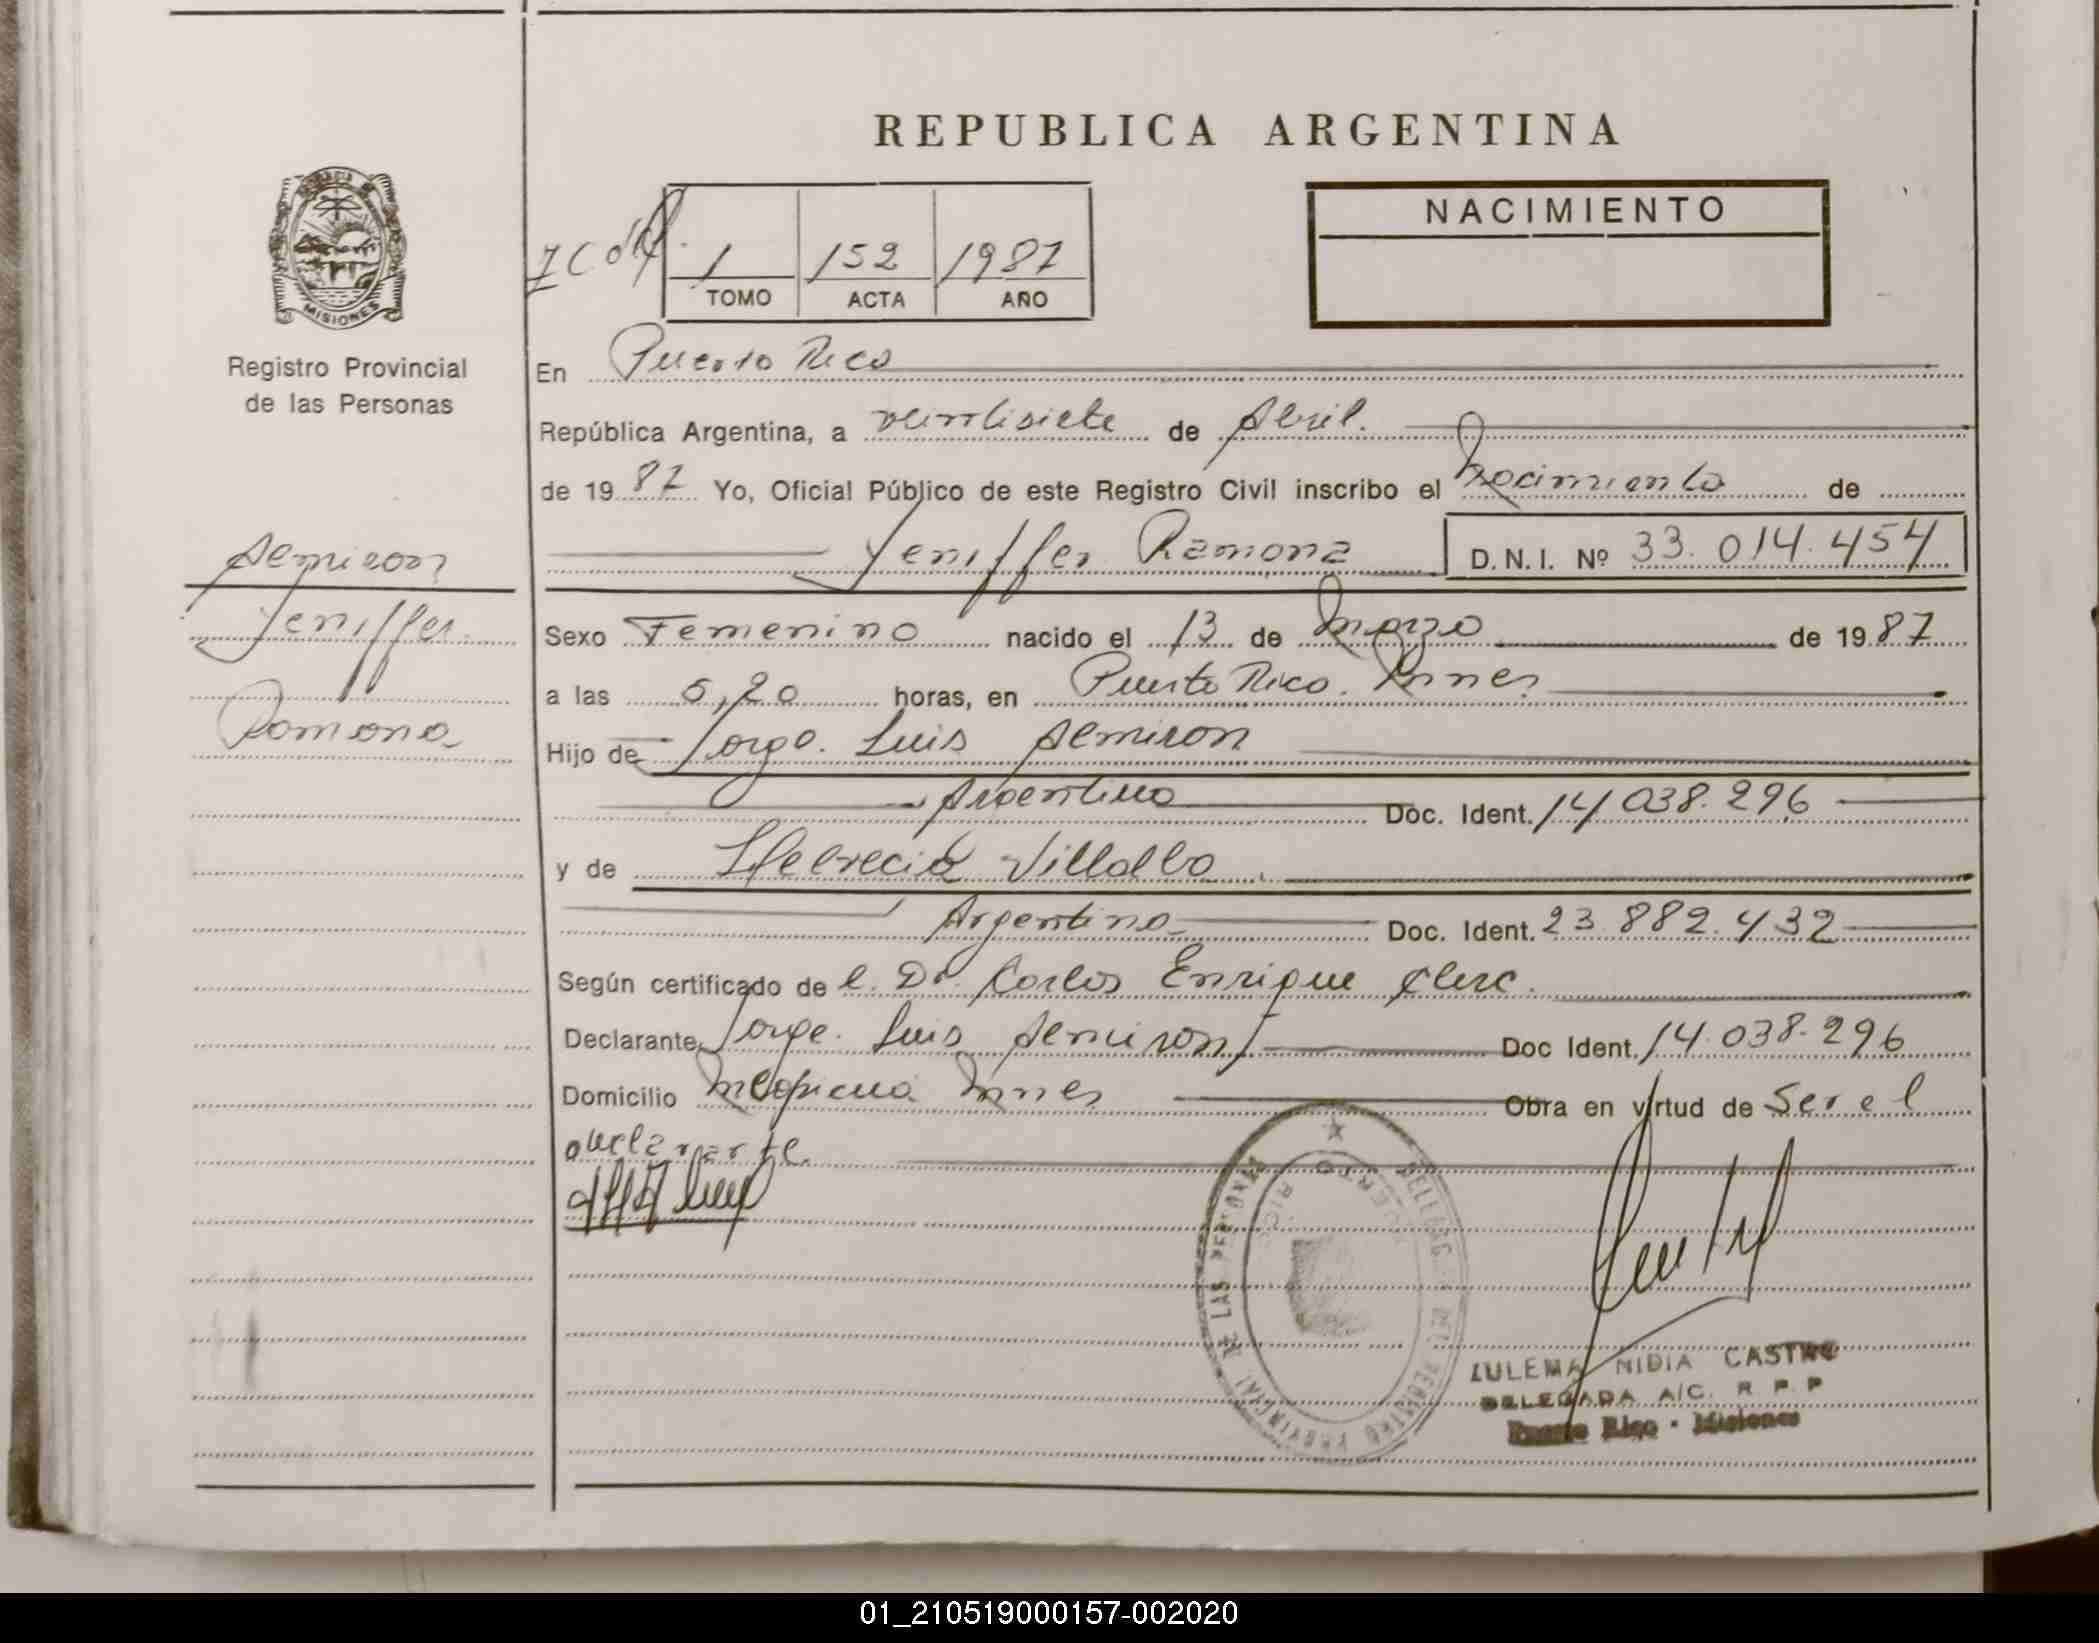 REPUBLICA ARGENTINA
NACIMIENTO
1 152 1987
TOMO ACTA AÑO
MISIONES
Registro Provincial
de las Personas
En Puerto Rico
República Argentina, a veintisiete de Abril.
de 19 87 Yo, Oficial Público de este Registro Civil inscribo el Nacimiento de
Yeniffer Ramona D.N.I. Nº 33.014.454
Almiron
Yeniffer
Ramona
Sexo Femenino nacido el 13 de Marzo de 19 87
a las 5,20 horas, en Puerto Rico. Mnes
Hijo de Jorge Luis Almiron
Argentino Doc. Ident. 14.038.296
y de Villalba
Argentina Doc. Ident. 23.882.432
Según certificado de l. Dr. Carlos Enrique Clerc.
Declarante Jorge Luis Almiron Doc Ident. 14.038.296
Domicilio Mnes Obra en virtud de Ser el
declarante.
DELEGACION DEL REGISTRO PROVINCIAL DE LAS PERSONAS
PUERTO RICO
ZULEMA NIDIA CASTRO
DELEGADA A/C. R. P. P
Puerto Rico - Misiones
01_210519000157-002020